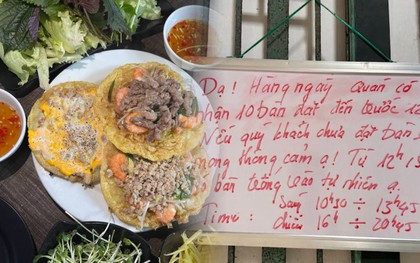 Dạ! Hàng ngày Quán có
nhận 10 bàn đặt đến trước 12
Nếu quý khách chưa đặt bàn
mong thông cảm ạ! Từ 12h15
có bàn trống vào tự nhiên ạ.
Sáng 10h30 ÷ 13h45
Time: chiều 16h ÷ 20h45